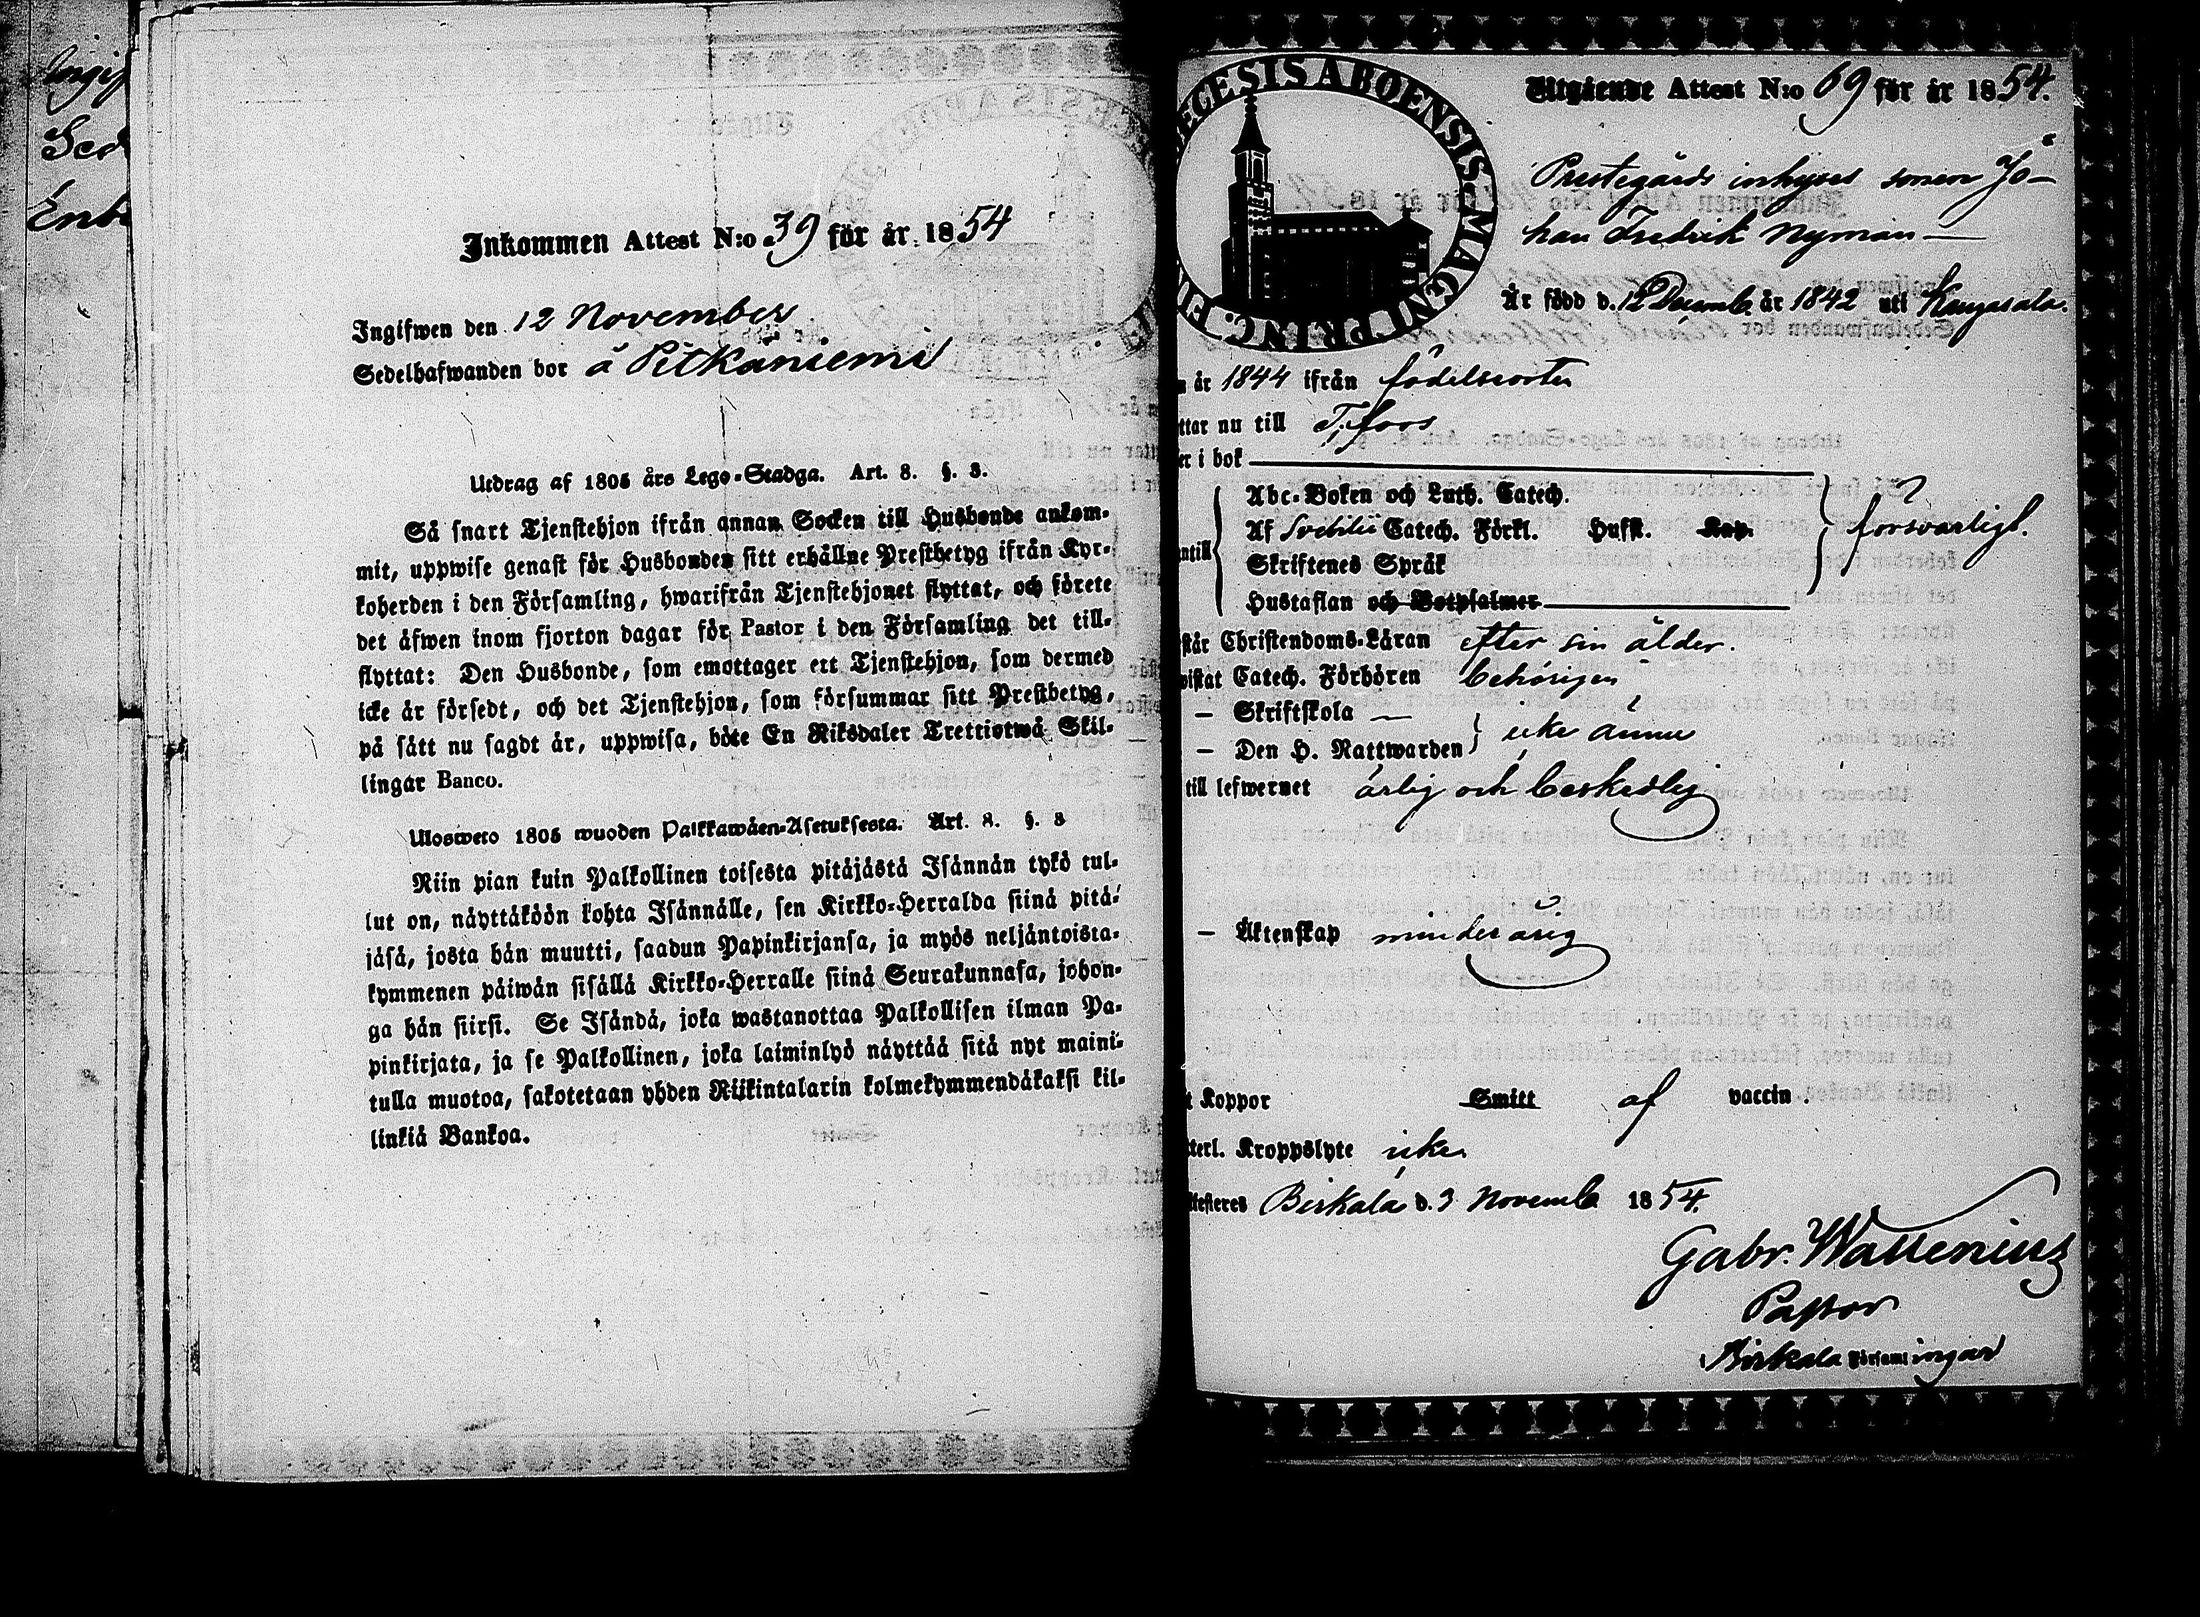 Inkommen Attest N:o 39 för år 1854
Ingifwen den 12 November
Sedelhafwanden bor å Pitkäniemi
Utdrag af 1805 års Lego-Stadga. Art. 8. §. 3.
Så snart Tjenstehjon ifrån annan Socken till Husbonde ankom-
mit, uppwise genast för Husbonden sitt erhållne Prestbetyg ifrån Kyr-
koherden i den Församling, hwarifrån Tjenstehjonet flyttat, och förete
det äfwen inom fjorton dagar för Pastor i den Församling det till-
flyttat: Den Husbonde, som emottager ett Tjenstehjon, som dermed
icke är försedt, och det Tjenstehjon, som försummar sitt Prestbetyg,
på sätt nu sagdt är, uppwisa, böte En Riksdaler Trettiotwå Skil-
lingar Banco.
Ulosweto 1805 wuoden Palkkawäen-Asetuksesta. Art. 8. §. 3
Niin pian kuin Palkollinen toisesta pitäjästä Isännän tykö tul-
lut on, näyttäköön kohta Isännälle, sen Kirkko-Herralda siinä pitä-
jäsä, josta hän muutti, saadun Papinkirjansa, ja myös neljäntoista-
kymmenen päiwän sisällä Kirkko-Herralle siinä Seurakunnasa, johon-
ga hän siirsi. Se Isändä, joka wastanottaa Palkollisen ilman Pa-
pinkirjata, ja se Palkollinen, joka laiminlyö näyttää sitä nyt maini-
tulla muotoa, sakotetaan yhden Riikintalarin kolmekymmendäkaksi kil-
linkiä Bankoa.
ECESIS ABOENSIS MAGNI PRINC. FIN
Utgående Attest N:o 69 för år 1854.
Prestegårds inhyses sonen Jo-
han Fredrik Nyman
Är född d. 12 Decemb. år 1842 uti Kangasala.
år 1844 ifrån födelseorten
ttar nu till T:fors
er i bok
Abc-Boken och Luth. Catech.
Af Svebilii Catech. Förkl. Husft. Kap. försvarligt.
ntill Skriftenes Språk
Hustaflan och Botpsalmer
står Christendoms-Läran efter sin ålder.
wistat Catech. Förhören behörigen
— Skriftskola —
— Den H. Nattwarden icke ännu
till lefwernet ärlig och beskedlig
— Äktenskap minderårig
t Koppor Smitt af vaccin.
terl. Kroppslyte icke
ttesteres Birkala d. 3 Novemb. 1854.
Gabr. Wallenius
Pastor
i Birkala Församlingar